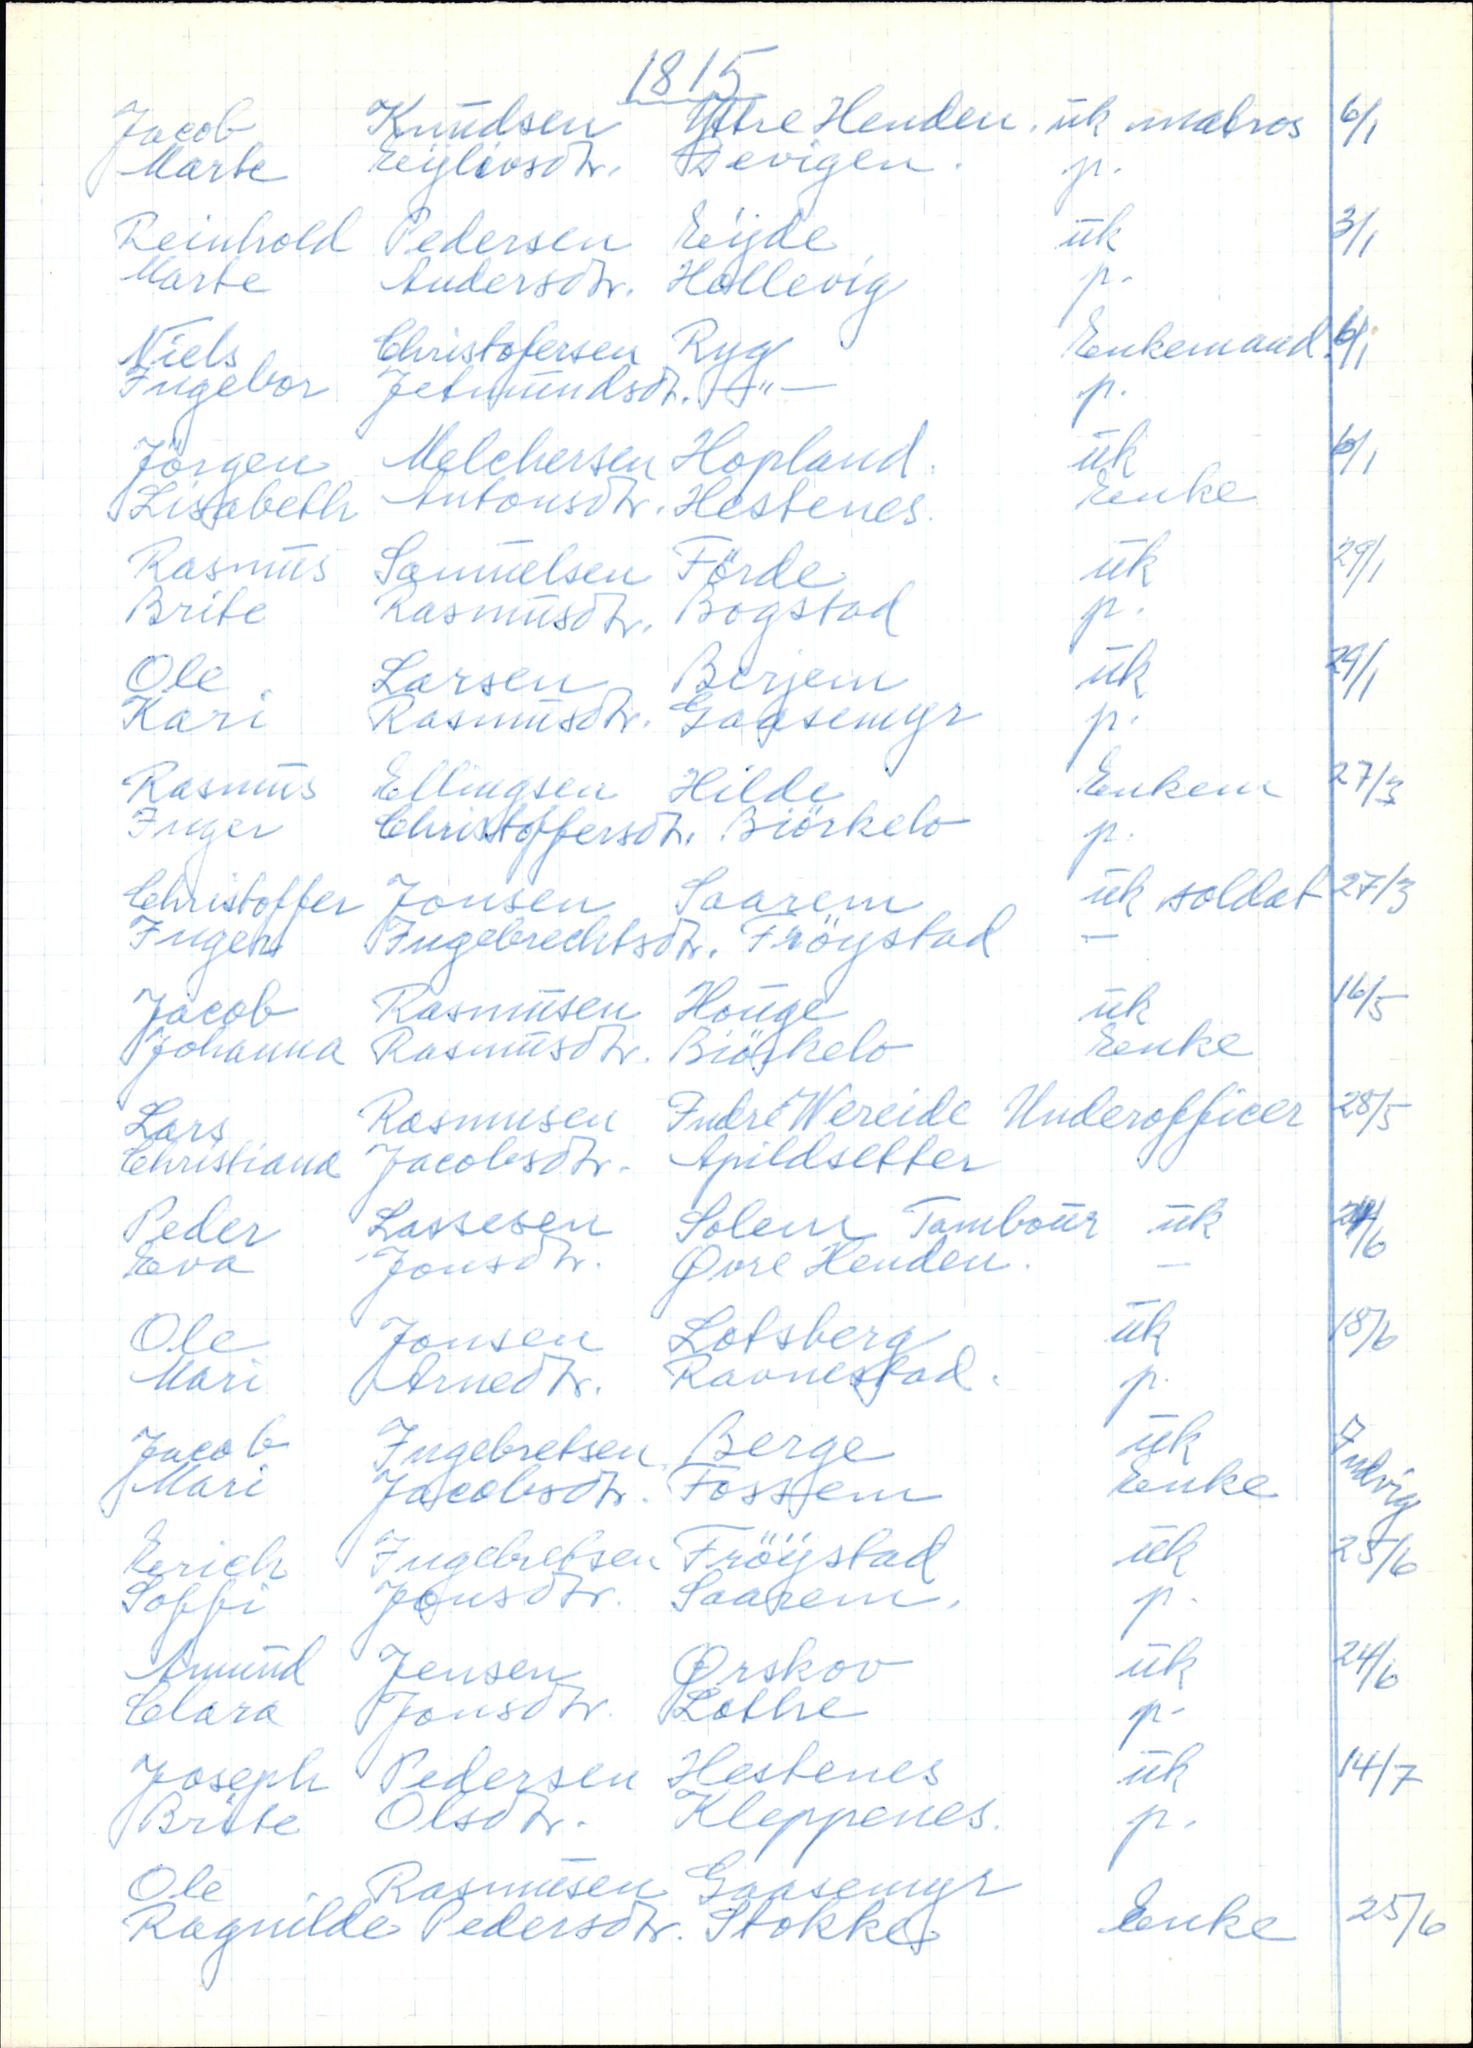 1815
Jacob Knudsen Yttre Henden. uk matros 6/1
Marte Eijlivsdtr. Devigen. p.
Reinhold Pedersen Eijde uk 3/1
Marte Andersdtr. Hollevig p.
Niels Christofersen Ryg Enkemand. 6/1
Ingebor Jetmundsdtr. —"— p.
Jörgen Melchersen Hopland. uk 6/1
Lisabeth Antonsdtr. Hestenes. Enke
Rasmus Samuelsen Förde uk 29/1
Brite Rasmusdtr. Bogstad p.
Ole Larsen Berjem uk 29/1
Kari Rasmusdtr. Gaasemyr p.
Rasmus Ellingsen Hilde Enkem 27/3
Inger Christoffersdtr. Biörkelo p.
Christoffer Jonsen Saarem uk soldat 27/3
Inger Ingebrechtsdtr. Fröystad —
Jacob Rasmusen Houge uk 16/5
Johanna Rasmusdtr. Biörkelo Enke
Lars Rasmusen Indre Wereide Underofficer 28/5
Christiana Jacobsdtr. Apildsetter
Peder Lassesen Solem Tambour uk 24/6
Eva Jonsdtr. Øvre Henden. —
Ole Jonsen Lotsberg uk 18/6
Mari Arnedtr. Ravnestad. p.
Jacob Ingebretsen Berge uk Indvig
Mari Jacobsdtr. Fossem Enke
Erich Ingebretsen Fröijstad uk 25/6
Soffi Jonsdtr. Saarem. p.
Amund Jensen Ørskov uk 24/6
Clara Jonsdtr. Lothe p.
Joseph Pedersen Hestenes uk 14/7
Brite Olsdtr. Kleppenes. p.
Ole Rasmusen Gaasemyr
Ragnilde Pedersdtr. Stokke Enke 25/6